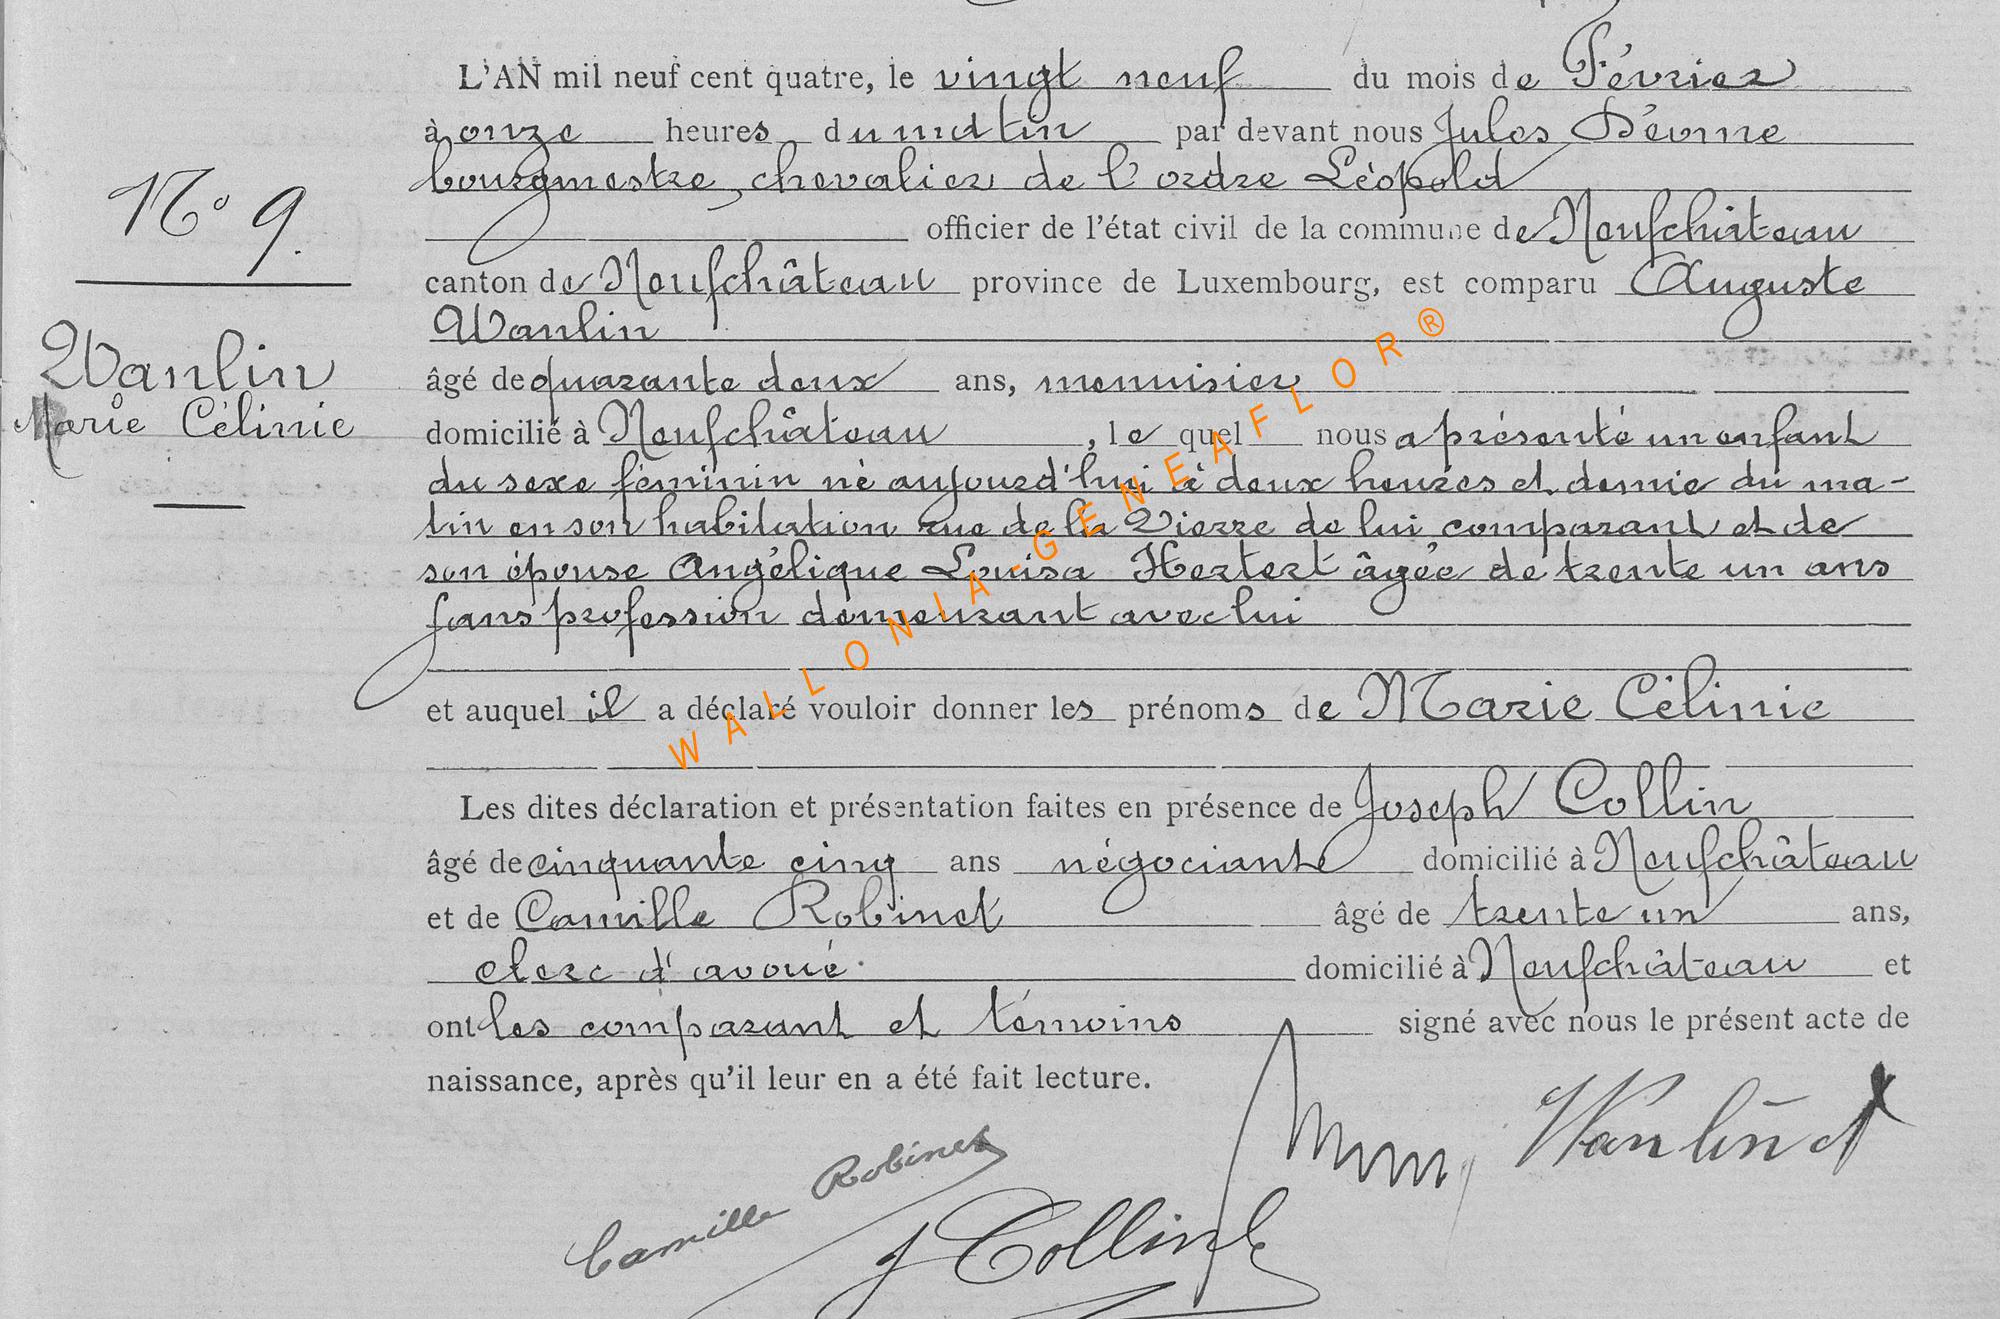 L'AN mil neuf cent quatre, le vingt neuf du mois de Février
à onze heures du matin par devant nous Jules
bourgmestre, chevalier de l'ordre Léopold
N° 9.
officier de l'état civil de la commune de Neufchâteau
canton de Neufchâteau province de Luxembourg, est comparu Auguste
Wanlin
Wanlin
Marie Célinie
âgé de quarante deux ans, menuisier
domicilié à Neufchâteau, le quel nous a présenté un enfant
du sexe féminin né aujourd'hui à deux heures et demie du ma-
tin en son habitation rue de la Vierre de lui comparant et de
son épouse Angélique Louisa Hertert âgée de trente un ans
sans profession demeurant avec lui
et auquel il a déclaré vouloir donner les prénoms de Marie Célinie
WALLONIA-GENEAFLOR®
Les dites déclaration et présentation faites en présence de Joseph Collin
âgé de cinquante cinq ans négociant domicilié à Neufchâteau
et de Camille Robinet âgé de trente un ans,
clerc d'avoué. domicilié à Neufchâteau et
ont les comparant et témoins signé avec nous le présent acte de
naissance, après qu'il leur en a été fait lecture.
Wanlin A
Camille Robinet
J Collin